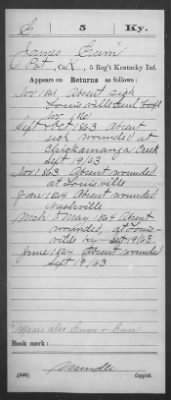 C 5 Ky.
James Crum
Pvt, Co. K, 5 Reg't Kentucky Inf.
Appears on Returns as follows:
Nov 1861 Absent sick
Louisville
Nov 1861
Sept & Oct 1863 Absent
sick wounded at
Chickamauga Creek
Sept 19/63
Nov 1863 Absent wounded
at Louisville
Jan 1864 Absent wounded
Nashville
Mch & May 1864 Absent
wounded, at Louis-
ville Ky Sept 19/63.
June 1864 Absent wounded
Sept 19/63
Appears also
Book mark:
(546) Copyist.